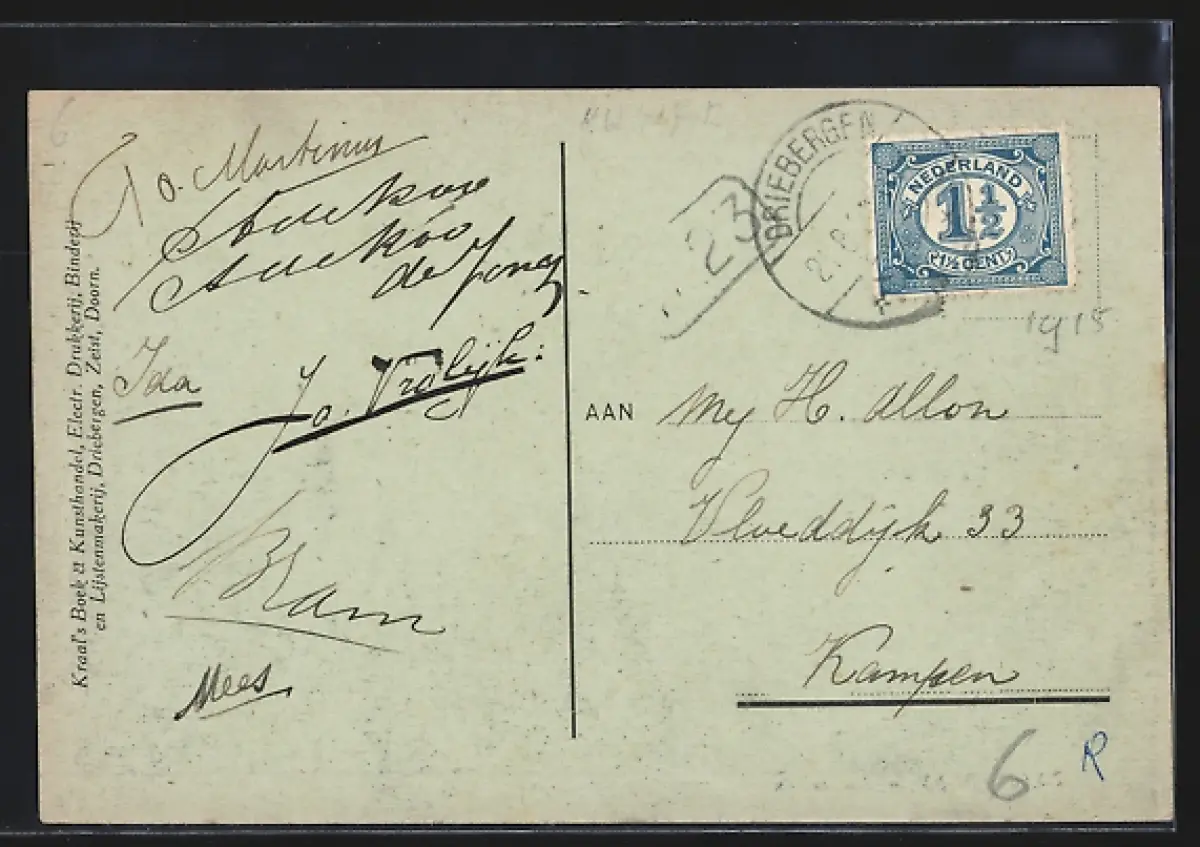 Jo. Martinus
de Jong
Ida
Jo. Vrolijk.
Bram
Mees
Kraal's Boek & Kunsthandel, Electr. Drukkerij, Binderij
en Lijstenmakerij, Driebergen, Zeist, Doorn.
DRIEBERGEN
23
NEDERLAND
1½
1½ CENT
1915
AAN
Mej H. Allon
Vloeddijk 33
Kampen
6
R
6